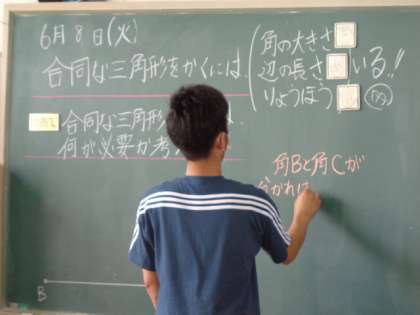 6月8日(火)
合同な三角形をかくには、
角の大きさ
辺の長さ いる!!
りょうほう
合同な三角形
何が必要か考
角Bと角Cが
分かれば
B